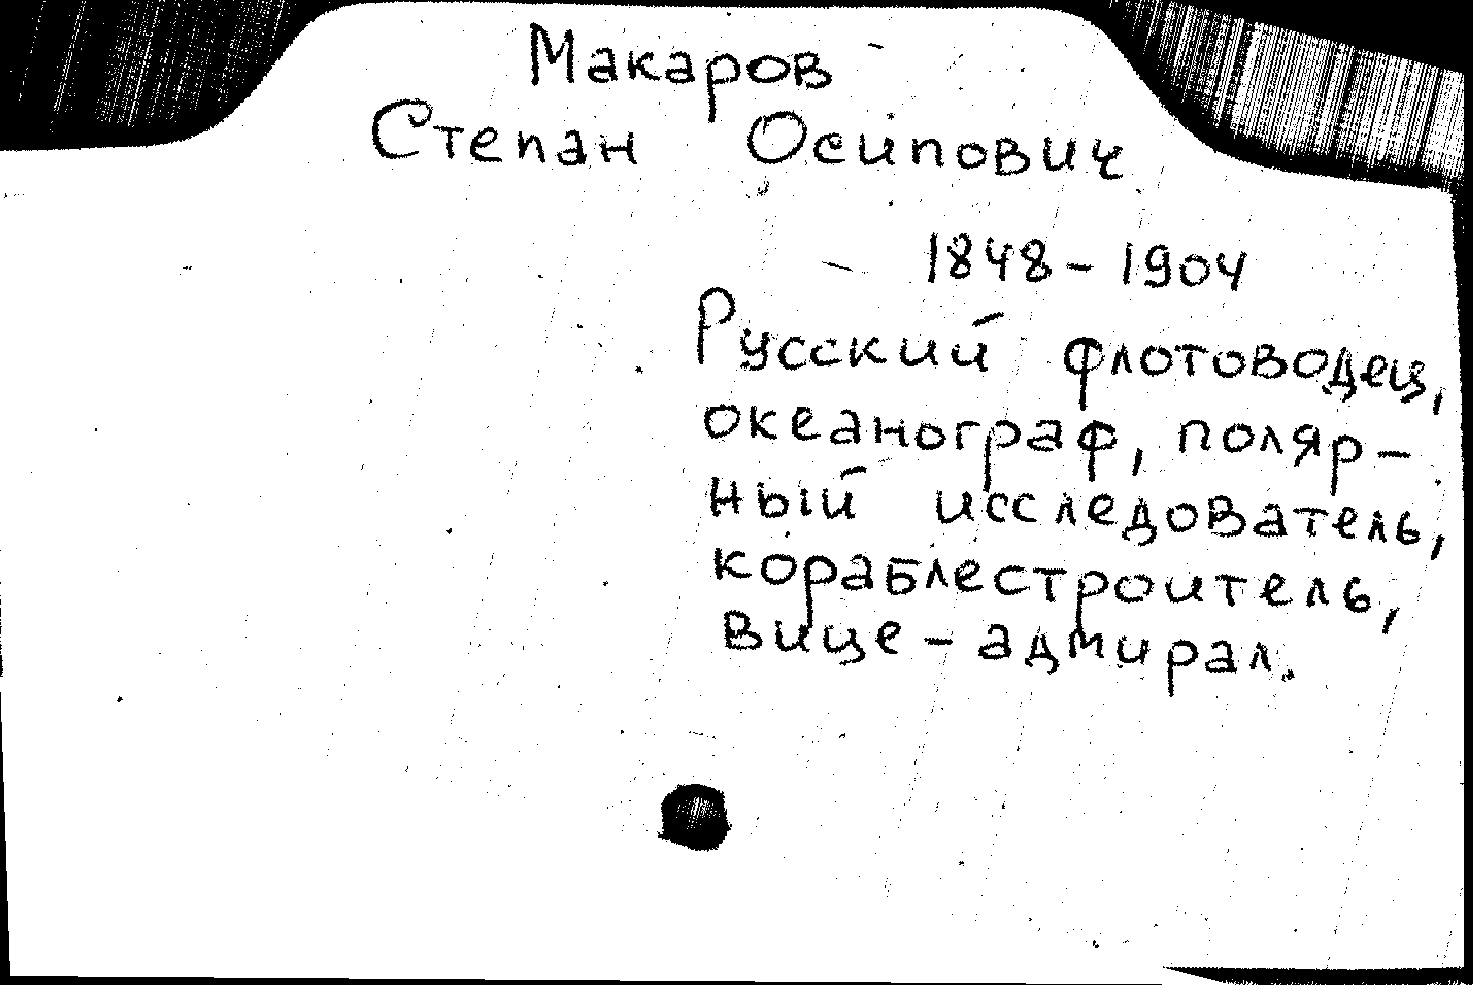 Макаров
Степан Осипович
1848-1904
Русский флотоводец,
океанограф, поляр-
ный исследователь,
кораблестроитель,
вице-адмирал.